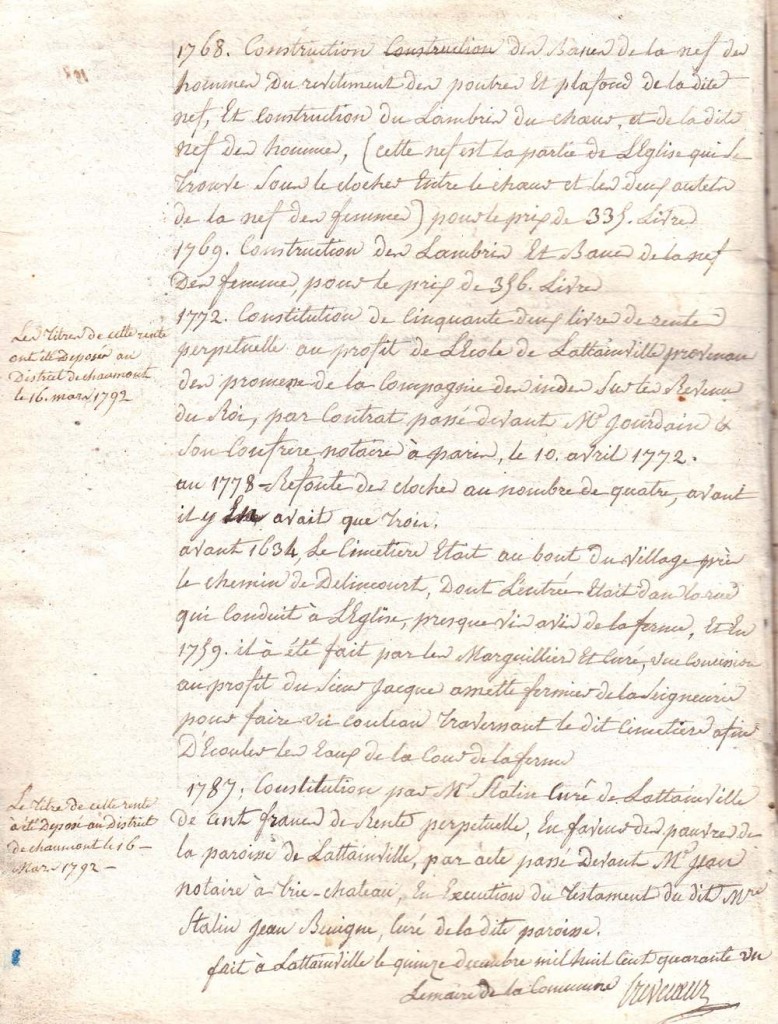 1768. Construction Construction des Bancs de la nef des
hommes Du revetiment des poutres Et plafond de la dite
nef, Et Construction du Lambris du chœur, et de la dite
nef des hommes, (cette nef est la partie de L'Eglise qui se
trouve sous le clocher Entre le chœur et les deux autels
de la nef des femmes) pour le prix de 335. Livres
1769. Construction des Lambris Et Bancs de la nef
Des femmes, pour le prix de 356. Livres
1772. Constitution de Cinquante deux livres de rente
perpetuelle au profit de L'Ecole de Lattainville provenan
des promesse de la Compagnie des indes Sur les Revenus
du Roi, par Contrat passé devant Mr. Jourdain &
Son Confrere notaire à paris, le 10. avril 1772.
au 1778 = Refonte de cloches au nombre de quatre, avant
il y En avait que trois.
avant 1634, Le Cimetiere Etait au bout du village près
le chemin de Delincourt, Dont L'entrée Etait dans la rue
qui Conduit à L'Eglise, presque vis avis de la ferme, Et En
1759. il à été fait par les Marguilliers Et Curé, une Concession
au profit du Sieur Jacque amette fermier de la Seigneurie
pour faire un couteau traversant le dit Cimetiere afin
D'Ecouler les Eaux de la Cour de la ferme
1787. Constitution par Mr. Stalin Curé de Lattainville
de Cent francs de Rente perpetuelle, En faveur des pauvres de
la paroisse de Lattainville, par acte passé Devant Mr. Jean
notaire à trie-chateau, En Execution du Testament du dit Mre
Stalin Jean Benigne, Curé de la dite paroisse.
fait à Lattainville le quinze decembre mil huit Cent quarante un
Le maire de la Commune Crevecœur
Les titres de cette rente
ont été Deposés au
District de chaumont
le 16. mars 1792
Le titre de cette rente
à été Deposé au District
de chaumont le 16 -
Mars 1792 -